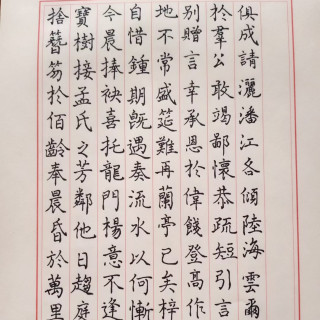 捨簪笏於佰齡奉晨昏於萬里
寶樹接孟氏之芳鄰他日趨庭
今晨捧袂喜托龍門楊意不逢
自惜鍾期既遇奏流水以何慚
地不常盛筵難再蘭亭已矣梓
別贈言幸承恩於偉餞登高作
於羣公敢竭鄙懷恭疏短引言
俱成請灑潘江各傾陸海雲爾